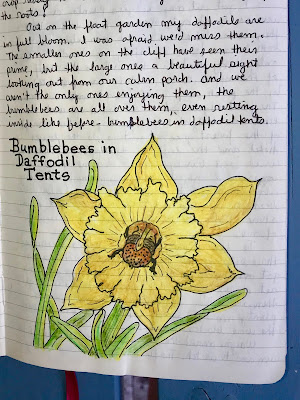 the roots!
Out on the float garden my daffodils are
in full bloom. I was afraid we'd miss them.
The smaller ones on the cliff have seen their
prime, but the large ones a beautiful sight
looking out from our cabin porch. And we
aren't the only ones enjoying them, the
bumblebees are all over them, even resting
inside like before - bumblebees in daffodil tents.
Bumblebees in
Daffodil
Tents